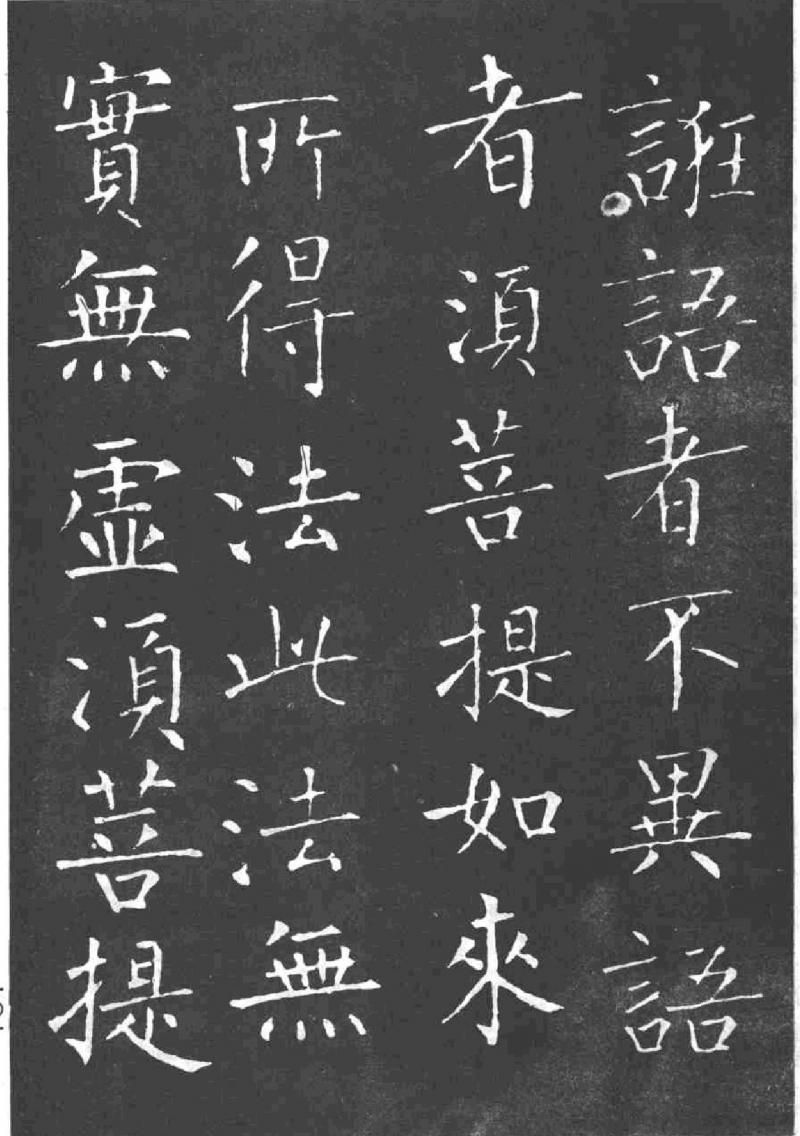 誑語者不異語
者須菩提如來
所得法此法無
實無虛須菩提